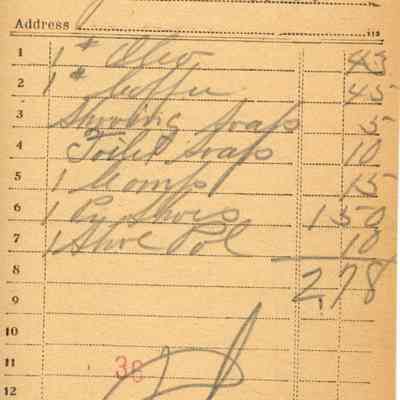 Address
1 1 # Oleo 43
2 1 # Coffee 45
3 soap 5
4 Toilet soap 10
5 1 15
6 1 Pr Shoes 1 50
7 1 Shoe Pol 10
8 2,78
9
10
11 38
12